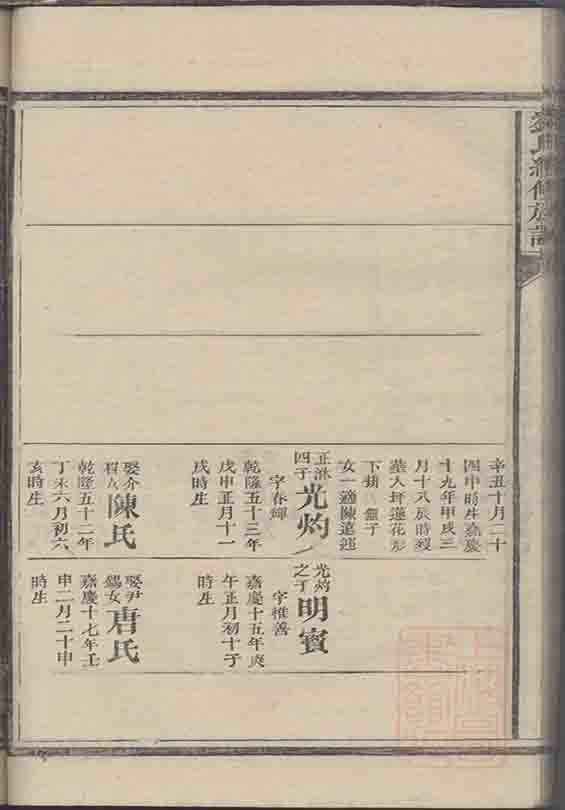 辛丑十月二十
四申時生嘉慶
十九年甲戌三
月十八辰時歿
葬人坪蓮花形
下 無子
女一適陳遠
正
四子
光灼
字春輝
乾隆五十三年
戊申正月十一
戌時生
娶介
陳氏
乾隆五十二年
丁未六月初六
亥時生
光灼
之子
明賓
字惟善
嘉慶十五年庚
午正月初十子
時生
娶尹
錫女
唐氏
嘉慶十七年壬
申二月二十申
時生